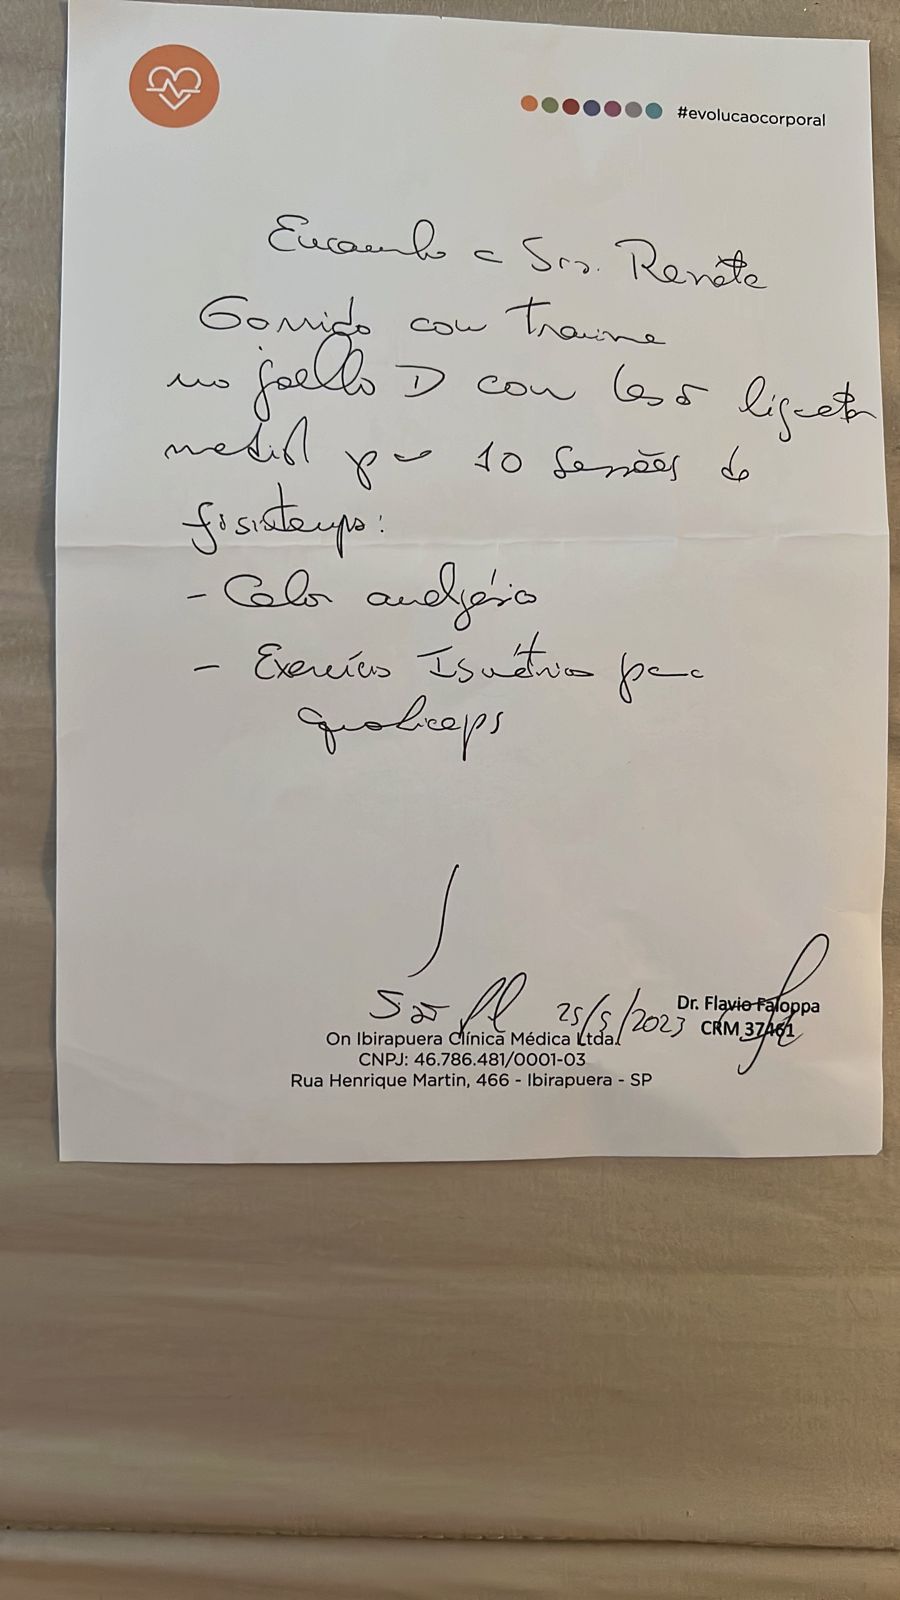 #evolucaocorporal
Encaminho a Sra. Renata
Garrido com trauma
no joelho D com lesão ligamentar
medial para 10 sessões de
fisioterapia:
- Calor analgésico
- Exercícios Isométricos para
quadríceps
25/5/2023
Dr. Flavio Faloppa
CRM 37461
On Ibirapuera Clínica Médica Ltda.
CNPJ: 46.786.481/0001-03
Rua Henrique Martin, 466 - Ibirapuera - SP